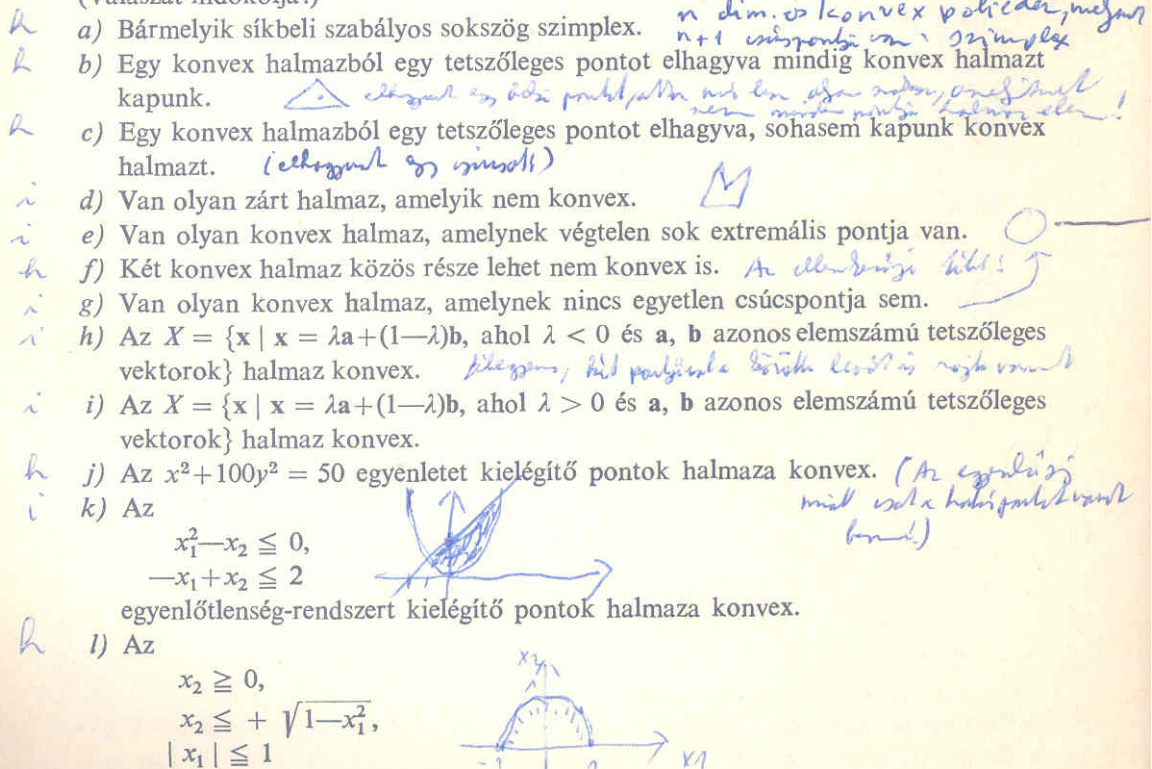 (Válaszát indokolja!)
n dim. os konvex poliéder, melynek
h a) Bármelyik síkbeli szabályos sokszög szimplex.
n+1 csúcspontja van : szimplex
h b) Egy konvex halmazból egy tetszőleges pontot elhagyva mindig konvex halmazt
kapunk.
h c) Egy konvex halmazból egy tetszőleges pontot elhagyva, sohasem kapunk konvex
halmazt. (elhagyunk egy csúcsot!)
i d) Van olyan zárt halmaz, amelyik nem konvex.
i e) Van olyan konvex halmaz, amelynek végtelen sok extremális pontja van.
h f) Két konvex halmaz közös része lehet nem konvex is. Az
i g) Van olyan konvex halmaz, amelynek nincs egyetlen csúcspontja sem.
i h) Az X = {x | x = λa+(1—λ)b, ahol λ < 0 és a, b azonos elemszámú tetszőleges
vektorok} halmaz konvex.
i i) Az X = {x | x = λa+(1—λ)b, ahol λ > 0 és a, b azonos elemszámú tetszőleges
vektorok} halmaz konvex.
h j) Az x²+100y² = 50 egyenletet kielégítő pontok halmaza konvex. (Az
i k) Az
miatt csak a
x₁²—x₂ ≦ 0,
—x₁+x₂ ≦ 2
egyenlőtlenség-rendszert kielégítő pontok halmaza konvex.
h l) Az
x₂
x₂ ≧ 0,
x₂ ≦ + √1—x₁²,
| x₁ | ≦ 1
-1 x1